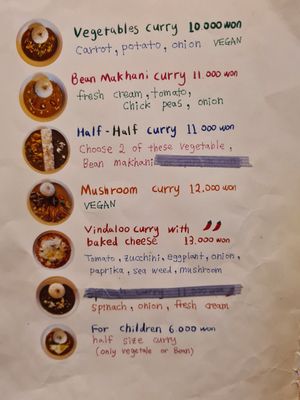 Vegetables curry 10.000 won
Carrot, potato, onion VEGAN
Bean Makhani curry 11.000 won
fresh cream, tomato,
chick peas, onion
Half-Half curry 11 000 won
Choose 2 of these vegetable,
Bean makhani
Mushroom curry 12,000 won
VEGAN
Vindaloo curry with
baked cheese 13.000 won
Tomato, zucchini, eggplant, onion,
paprika, sea weed, mushroom
spinach, onion, fresh cream
For children 6.000 won
half size curry
(only vegetale or Bean)